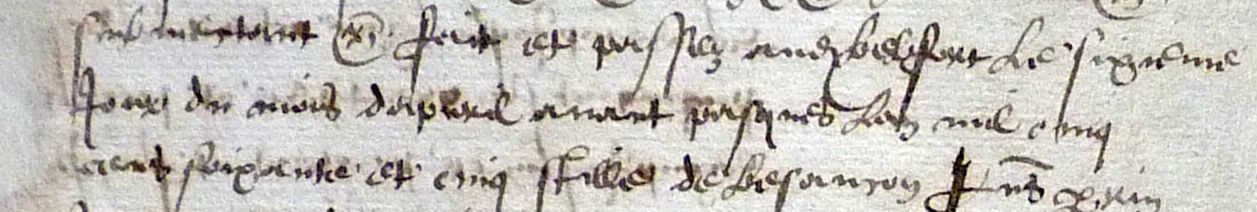 fait et passez audit belfort le sixieme
Jour du mois dapvril avant pasques Lan mil cinq
cent soixante et cinq stille de besancon